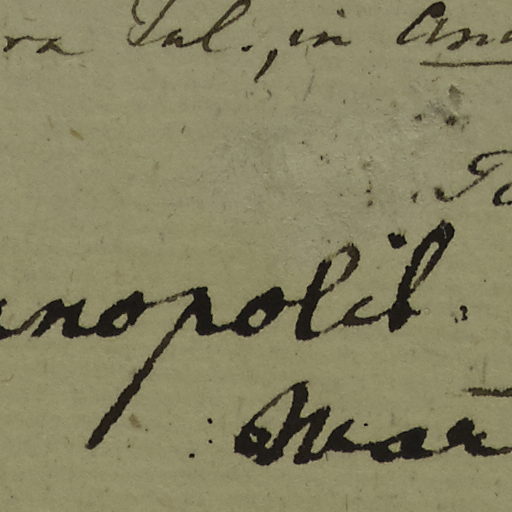 ra Tul., in An
To
anopolil.
Mar